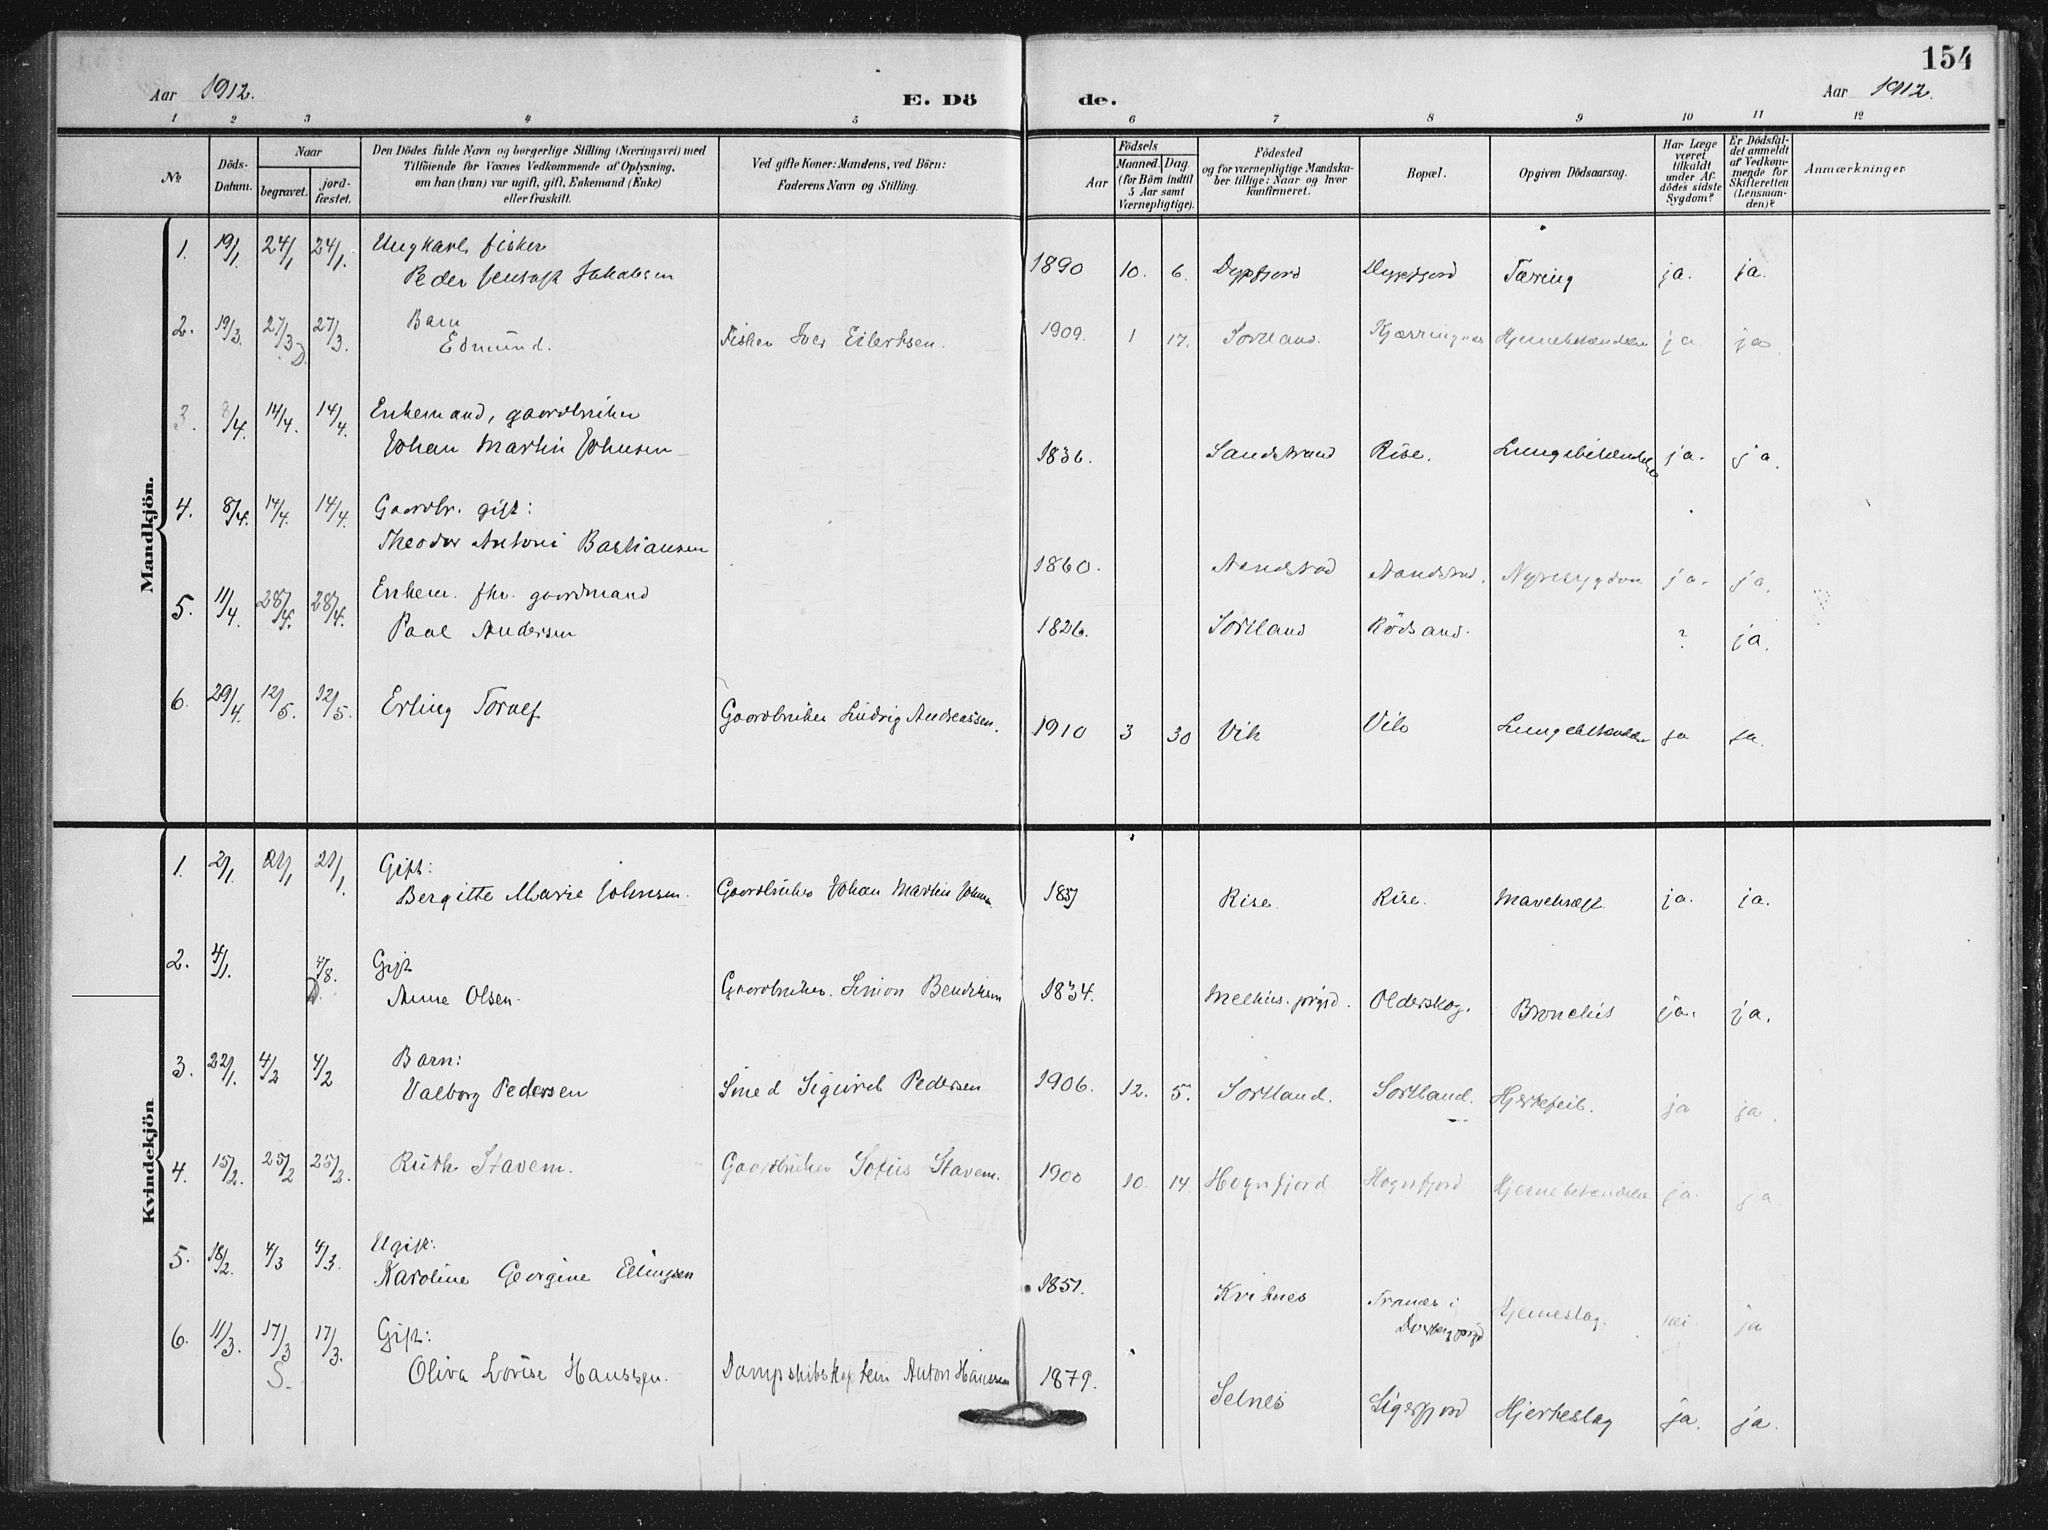 154
Aar 1912.
E. Dö de.
Aar 1912.
1 2 3 4 5 6 7 8 9 10 11 12
№
Döds-Datum.
Naar
begravet.
jord-fæstet.
Den Dödes fulde Navn og borgerlige Stilling (Næringsvei) med
Tilföiende for Voxnes Vedkommende af Oplysning,
om han (hun) var ugift, gift, Enkemand (Enke)
eller fraskilt.
Ved gifte Koner: Mandens, ved Börn:
Faderens Navn og Stilling.
Födsels
Aar
Maaned. Dag
(for Börn indtil
5 Aar samt
Værnepligtige).
Födested
og for værnepligtige Mandska-
ber tillige: Naar og hvor
konfirmeret.
Bopæl.
Opgiven Dödsaarsag.
Har Læge
været
tilkaldt
under Af-
dödes sidste
Sygdom?
Er Dödsfal-
det anmeldt
af Vedkom-
mende for
Skifteretten
(Lensman-
den)?
Anmærkninger
Mandkjön.
1. 19/1. 24/1 24/1. Ungkarl, fisker
Peder Jentoft Jakobsen 1890 10. 6. Dypfjord Dypfjord Tæring ja. ja.
2. 19/3. 27/3 D. 27/3. Barn
Edmund. Fisker Iver Eilertsen. 1909. 1 17. Sortland. Kjærringnes Hjernebetændelse ja ja
3. 8/4. 14/4. 14/4. Enkemand, gaardbruker
Johan Martin Johnsen 1836. Sandstrand Rise. Lungebetændelse ja. ja.
4. 8/4. 14/4. 14/4. Gaardbr. gift:
Theodor Antoni Bastiansen 1860. Aandstad Aandstad. Nyresygdom ja. ja.
5. 11/4. 28/4. 28/4. Enkem. fhv. gaardmand
Paal Andersen 1826. Sortland Rödsand. ? ja.
6. 29/4. 12/5. 12/5. Erling Toralf Gaardbruker Ludvig Andreassen. 1910 3 30 Vik Vik Lungebetændelse ja ja.
Kvindekjön
1. 2/1. 21/1 21/1. Gift:
Bergitte Marie Johnsen. Gaardbruker Johan Martin Johnsen Rise Rise. Mavekræft ja. ja.
2. 4/1. 4/8. D. Gift
Anne Olsen. Gaardbruker. Simon Bendiksen 1834. Melhus prgjd. Olderskog. Bronchit ja. ja.
3. 22/1. 4/2 4/2 Barn:
Valborg Pedersen Smed Sigurd Pedersen 1906. 12. 5. Sortland. Sortland. Hjertefeil. ja ja.
4. 15/2. 25/2 25/2. Ruth Stavem. Gaardbruker Sofus Stavem. 1900 10. 14. Hognfjord Hognfjord Hjernebetændelse ja. ja
5. 18/2. 4/3 4/3. Ugift:
Karoline Georgine Ellingsen 1851. Kvitnes Tranes i
Dverberg prgjd Hjerneslag. nei. ja
6. 11/3. 17/3 S. 17/3. Gift:
Oliva Lovise Hanssen. Dampskibskaptein Anton Hanssen 1879. Selnes Sigerfjord Hjerteslag ja. ja.